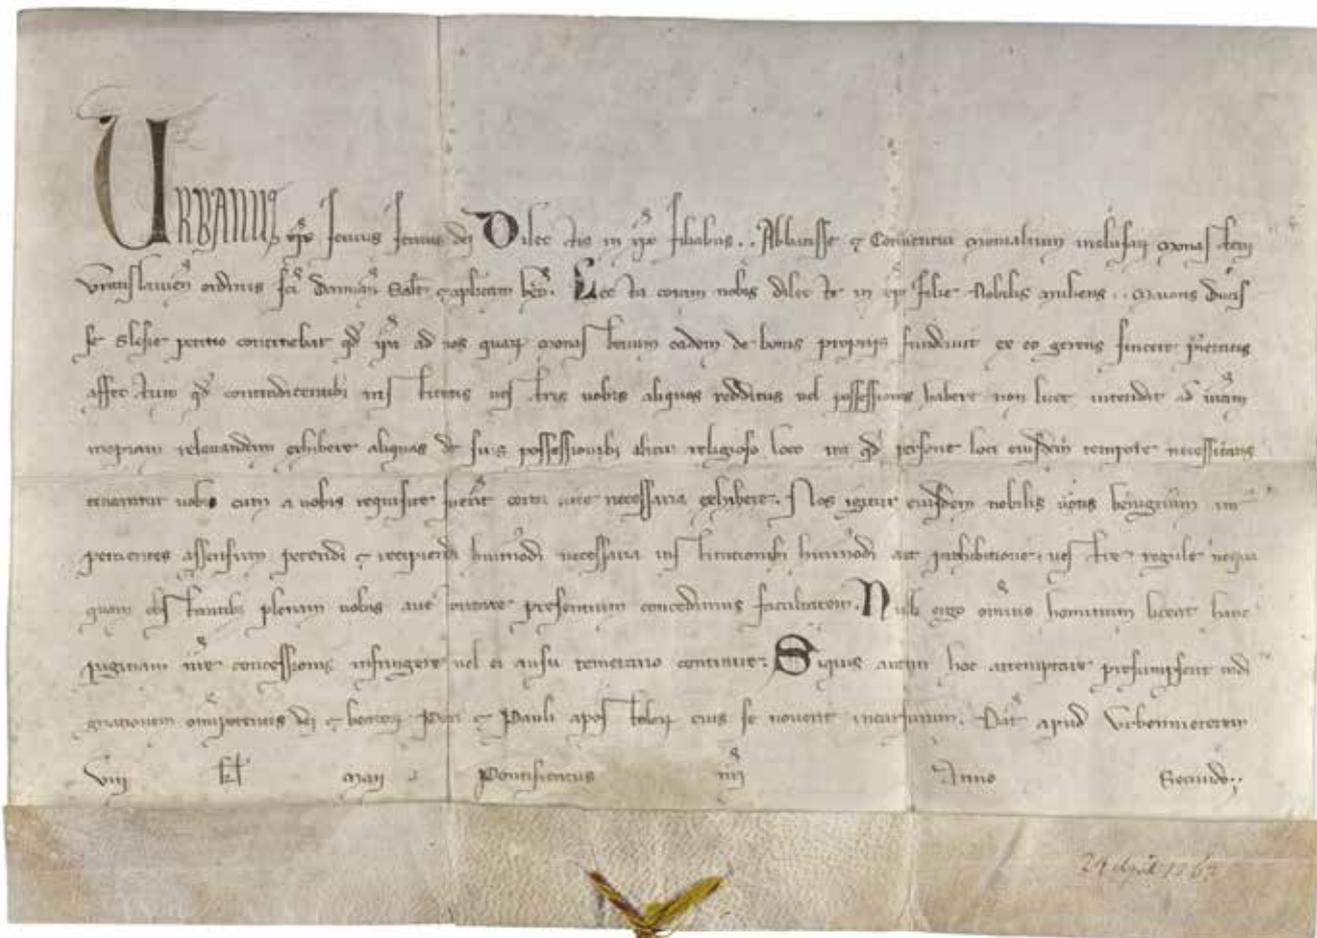 URBANUS eps seruus seruor dei Dilectis in xpo filiabus .. Abbatisse ⁊ Conuentui monialium inclusarum monasterii
Wratislauien ordinis sci Damiani Salt ⁊ aplicam ben. Lecta coram nobis dilecte in xpo filie Nobilis mulieris .. ducis
se Slesie petitio continebat qd ipa ad uos quar monasterium eadem de bonis propriis fundauit ex eo gerens sincere pietatis
affectum qd contradicentib; institutis uestris uobis aliquos redditus uel possessiones habere non licet intendit ad uram
inopiam releuandam exhibere aliquas de suis possessionib; alicui religioso loco ita qd persone loci eiusdem tempore necessitatis
teneantur uobis cum a uobis requisite fuerit certa uite necessaria exhibere. Nos igitur eiusdem nobilis uotis benignum im
pertientes assensum petendi ⁊ recipiendi huiusmodi necessaria institutionib; huiusmodi aut prohibitione uestre regule nequa
quam obstantib; plenam uobis auctoritate presentium concedimus facultatem. Nulli ergo omnino hominum liceat hanc
paginam nre concessionis infringere uel ei ausu temerario contraire. Siquis autem hoc attemptare presumpserit indi
gnationem omnipotentis dei ⁊ beator Petri ⁊ Pauli apostolor eius se nouerit incursurum. Dat apud Vrbemueterem
viij kl maij Pontificatus nri Anno Secundo.
24 April 1263